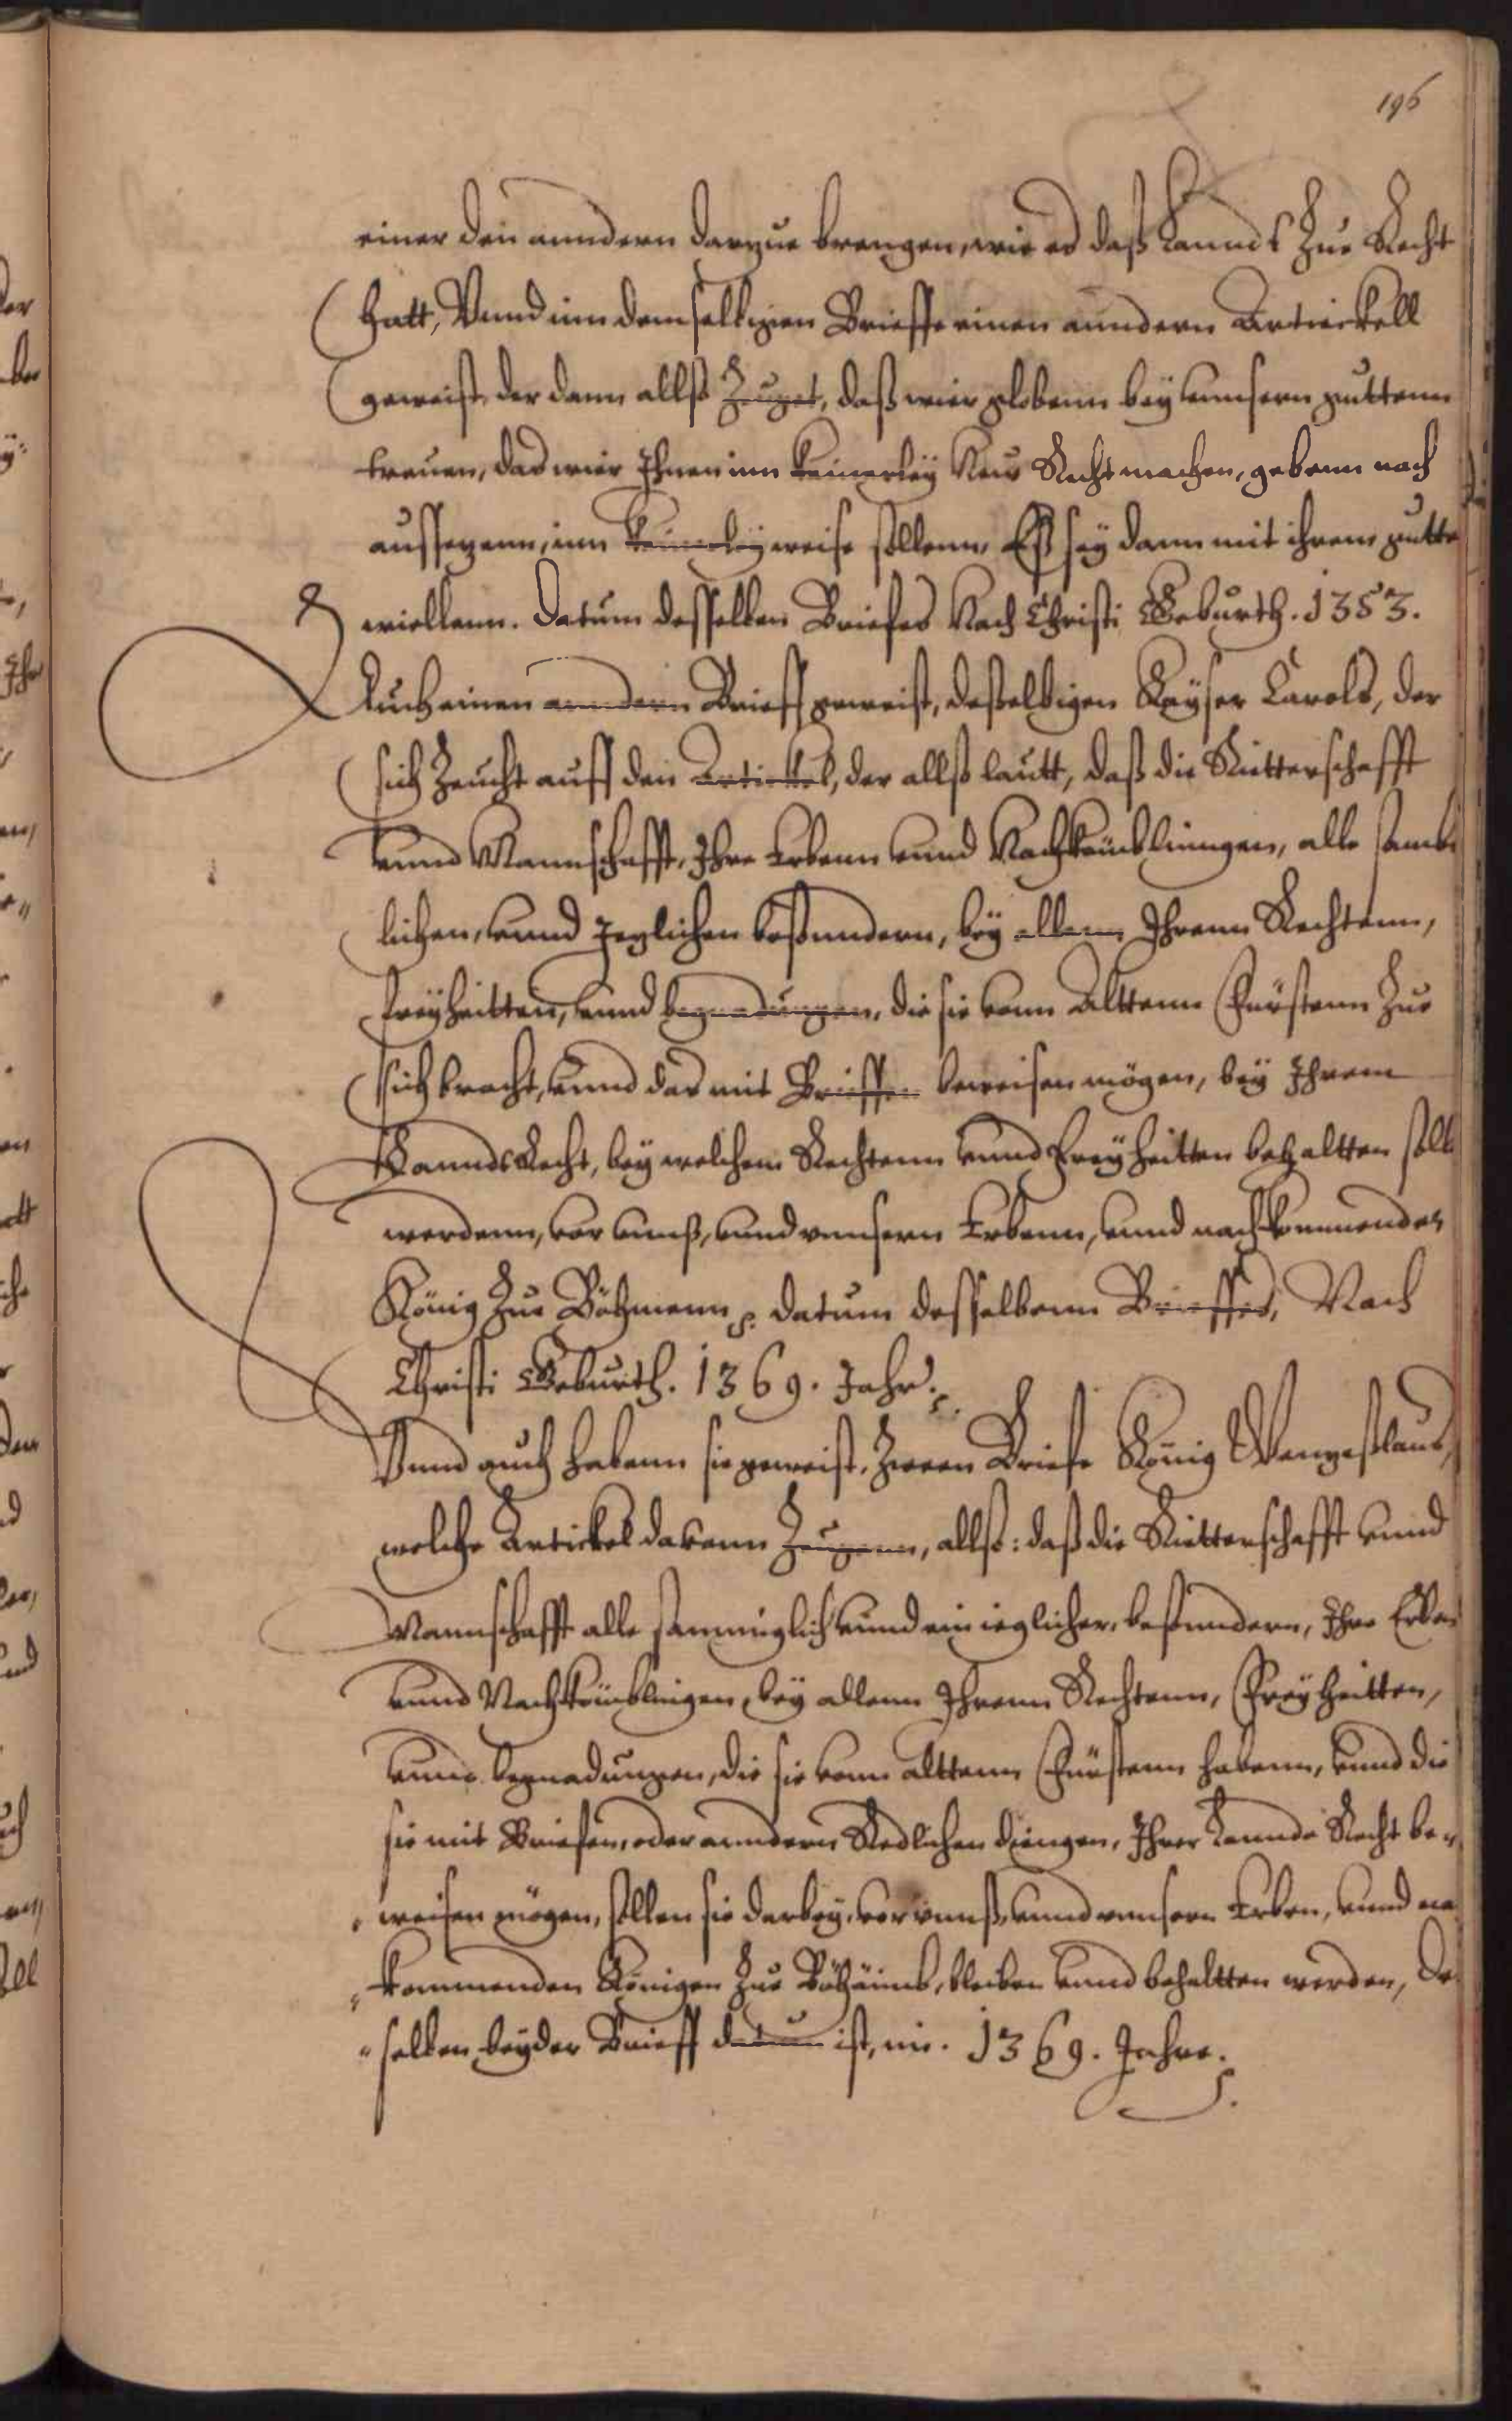 196
einer den anndern darzue brengen, wie es daß Lannds Zue Recht
hatt, Vnnd inn demselbigen Brieffe einen anndern Artieckell
geweist, der dann allß Zeuget, daß wier globenn bey vnnsern guttenn
treuen, das wier Ihnen inn keinerley New Recht machen, gebenn noch
aufsezenn, inn keinerley weise sollenn, Eß sey dann mit ihrem gutte
wiellenn. Datum desselben Briefes Nach Christi Geburth. 1353.
Auch einen anndern Brieff geweist, deßelbigen Kayser Carols, der
sich Zeucht auff den Artickel, der allß lautt, daß die Ritterschafft
vnnd Mannschafft, Ihre Erbenn vnnd Nachkömblingen, alle samb
lichen, vnnd Jeglichen besonndern, bey allenn Ihrenn Rechtenn,
freyheitten, vnnd begnadungen, die sie vonn Alttenn Fürstenn Zue
sich bracht, vnnd das mit Brieffen beweisen mögen, bey Ihrem
Lannds Recht, bey welchem Rechtenn vnnd Freyheitten behaltten soll
werdenn, vor vnnß, vnnd vnnsern Erbenn, vnnd nachkommenden
König Zue Böhmenn, datum desselbenn Brieffes, Nach
Christi Geburth. 1369. Jahr.
Vnnd auch habenn sie geweist, Zween Briefe König Wenzeßlaus,
welche Artickel davonn Zeugenn, allß: daß die Ritterschafft vnnd
Mannschafft alle sämmiglich vnnd ein ieglicher, besonndern, Ihre Erben
vnnd Nachkömblingen, bey allenn Ihrenn Rechtenn, Freyheitten,
vnnd begnadungen, die sie vonn alttenn Fürstenn habenn, vnnd die
sie mit Briefen, oder anndern Redlichen diengen, Ihrer Lannde Recht be-
weisen mögen, sollen sie darbey, vor vnnß, vnnd vnnsern Erben, vnnd na
kommenden Königen Zue Böhaimb, bleiben vnnd behaltten werden, De
selben beyder Brieff datum ist, im. 1369. Jahre.